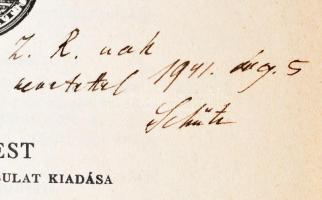 Z. R. nak
szeretettel 1941. aug. 5
Schütz
EST
ULAT KIADÁSA